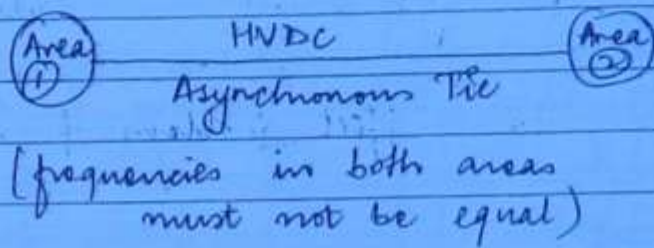 Area HVDC Area
① ②
Asynchronous Tie
[frequencies in both areas
must not be equal)